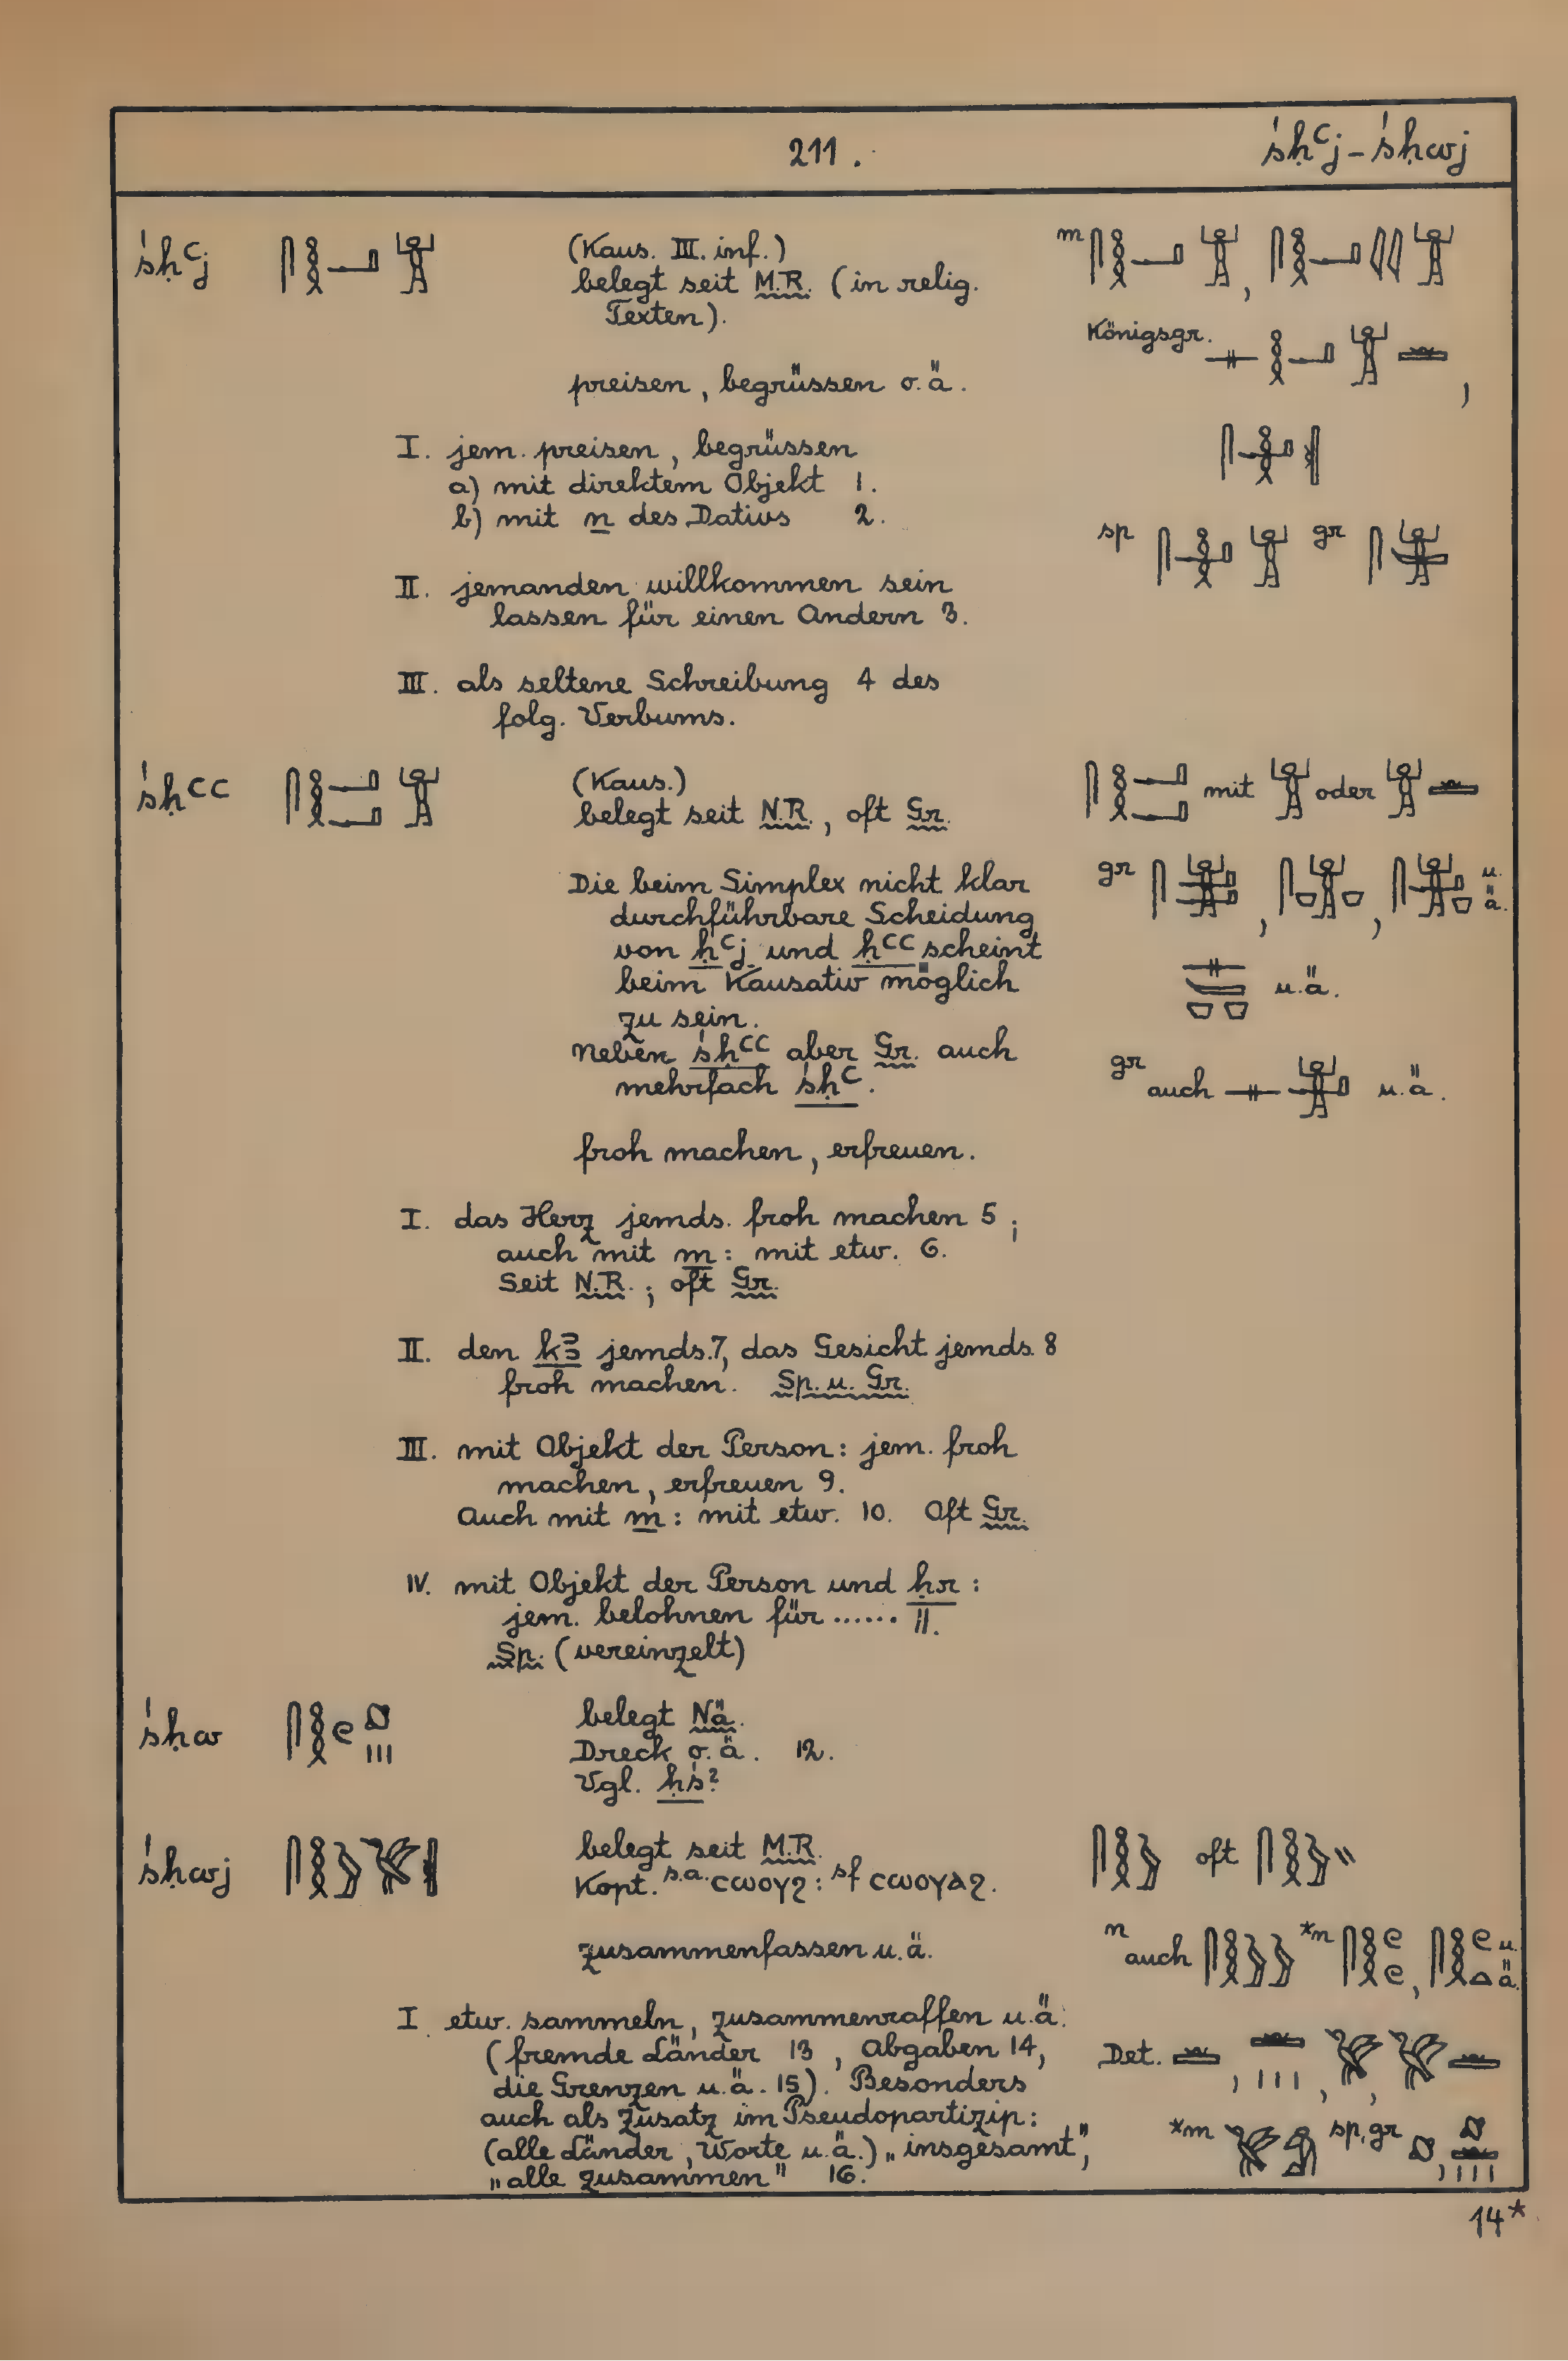 211.
śḥꜥj – śḥwj
śḥꜥj
(Kaus. III. inf.)
belegt seit M.R. (in relig.
Texten).
m
Königsgr.
preisen, begrüssen o.ä.
I. jem. preisen, begrüssen
a) mit direktem Objekt 1.
b) mit n des Dativs 2.
sp
gr
II. jemanden willkommen sein
lassen für einen Andern 3.
III. als seltene Schreibung 4 des
folg. Verbums.
śḥꜥꜥ
(Kaus.)
belegt seit N.R., oft Gr.
mit oder
Die beim Simplex nicht klar
durchführbare Scheidung
von ḥꜥj und ḥꜥꜥ scheint
beim Kausativ möglich
zu sein.
Neben śḥꜥꜥ aber Gr. auch
mehrfach śḥꜥ.
gr , , u.ä.
u.ä.
gr auch u.ä.
froh machen, erfreuen.
I. das Herz jemds. froh machen 5;
auch mit m: mit etw. 6.
Seit N.R.; oft Gr.
II. den kꜣ jemds. 7, das Gesicht jemds. 8
froh machen. Sp. u. Gr.
III. mit Objekt der Person: jem. froh
machen, erfreuen 9.
Auch mit m: mit etw. 10. Oft Gr.
IV. mit Objekt der Person und ḥr:
jem. belohnen für ...... 11.
Sp. (vereinzelt)
śḥw
belegt Nä.
Dreck o.ä. 12.
Vgl. ḥś?
śḥwj
belegt seit M.R.
Kopt. s.a. ⲥⲱⲟⲩϩ: sf ⲥⲱⲟⲩⲁϩ.
oft
zusammenfassen u.ä.
n auch *m , u.ä.
I. etw. sammeln, zusammenraffen u.ä.
(fremde Länder 13, Abgaben 14,
die Grenzen u.ä. 15). Besonders
auch als Zusatz im Pseudopartizip:
(alle Länder, Worte u.ä.) „insgesamt",
„alle zusammen" 16.
Det. , , ,
*m sp, gr ,
14*